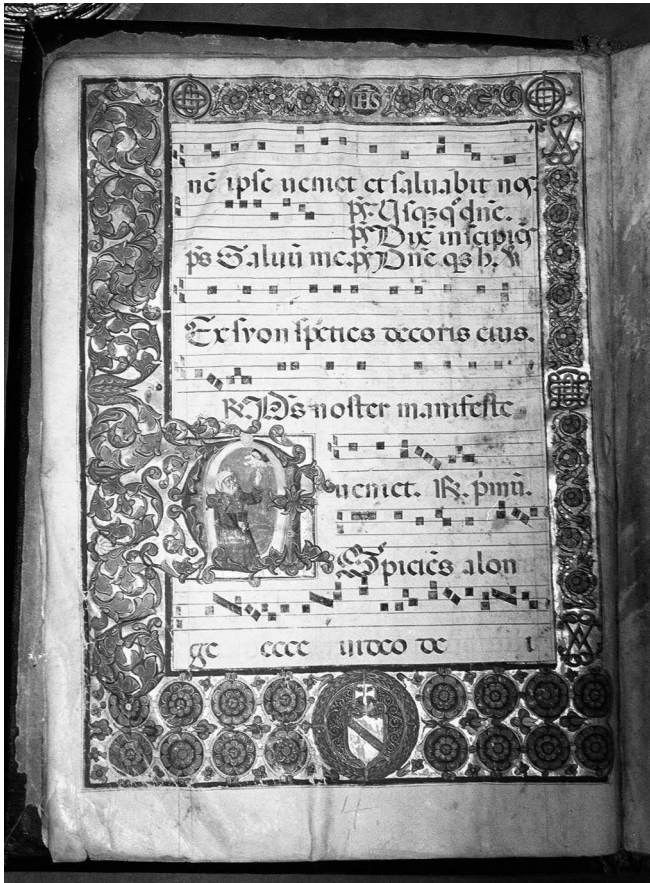 IHS
nē ipse veniet et saluabit nos.
ps. Usqꝫ qº dn̄e.
ps. Dix̄ insipiēs
ps Saluū me. ps Dn̄e. qs h.
Ex syon species decoris eius.
R. Ds̄ noster manifeste
ueniet. R. p̄mū.
Aspiciēs a lon
ge ecce uideo de i
4